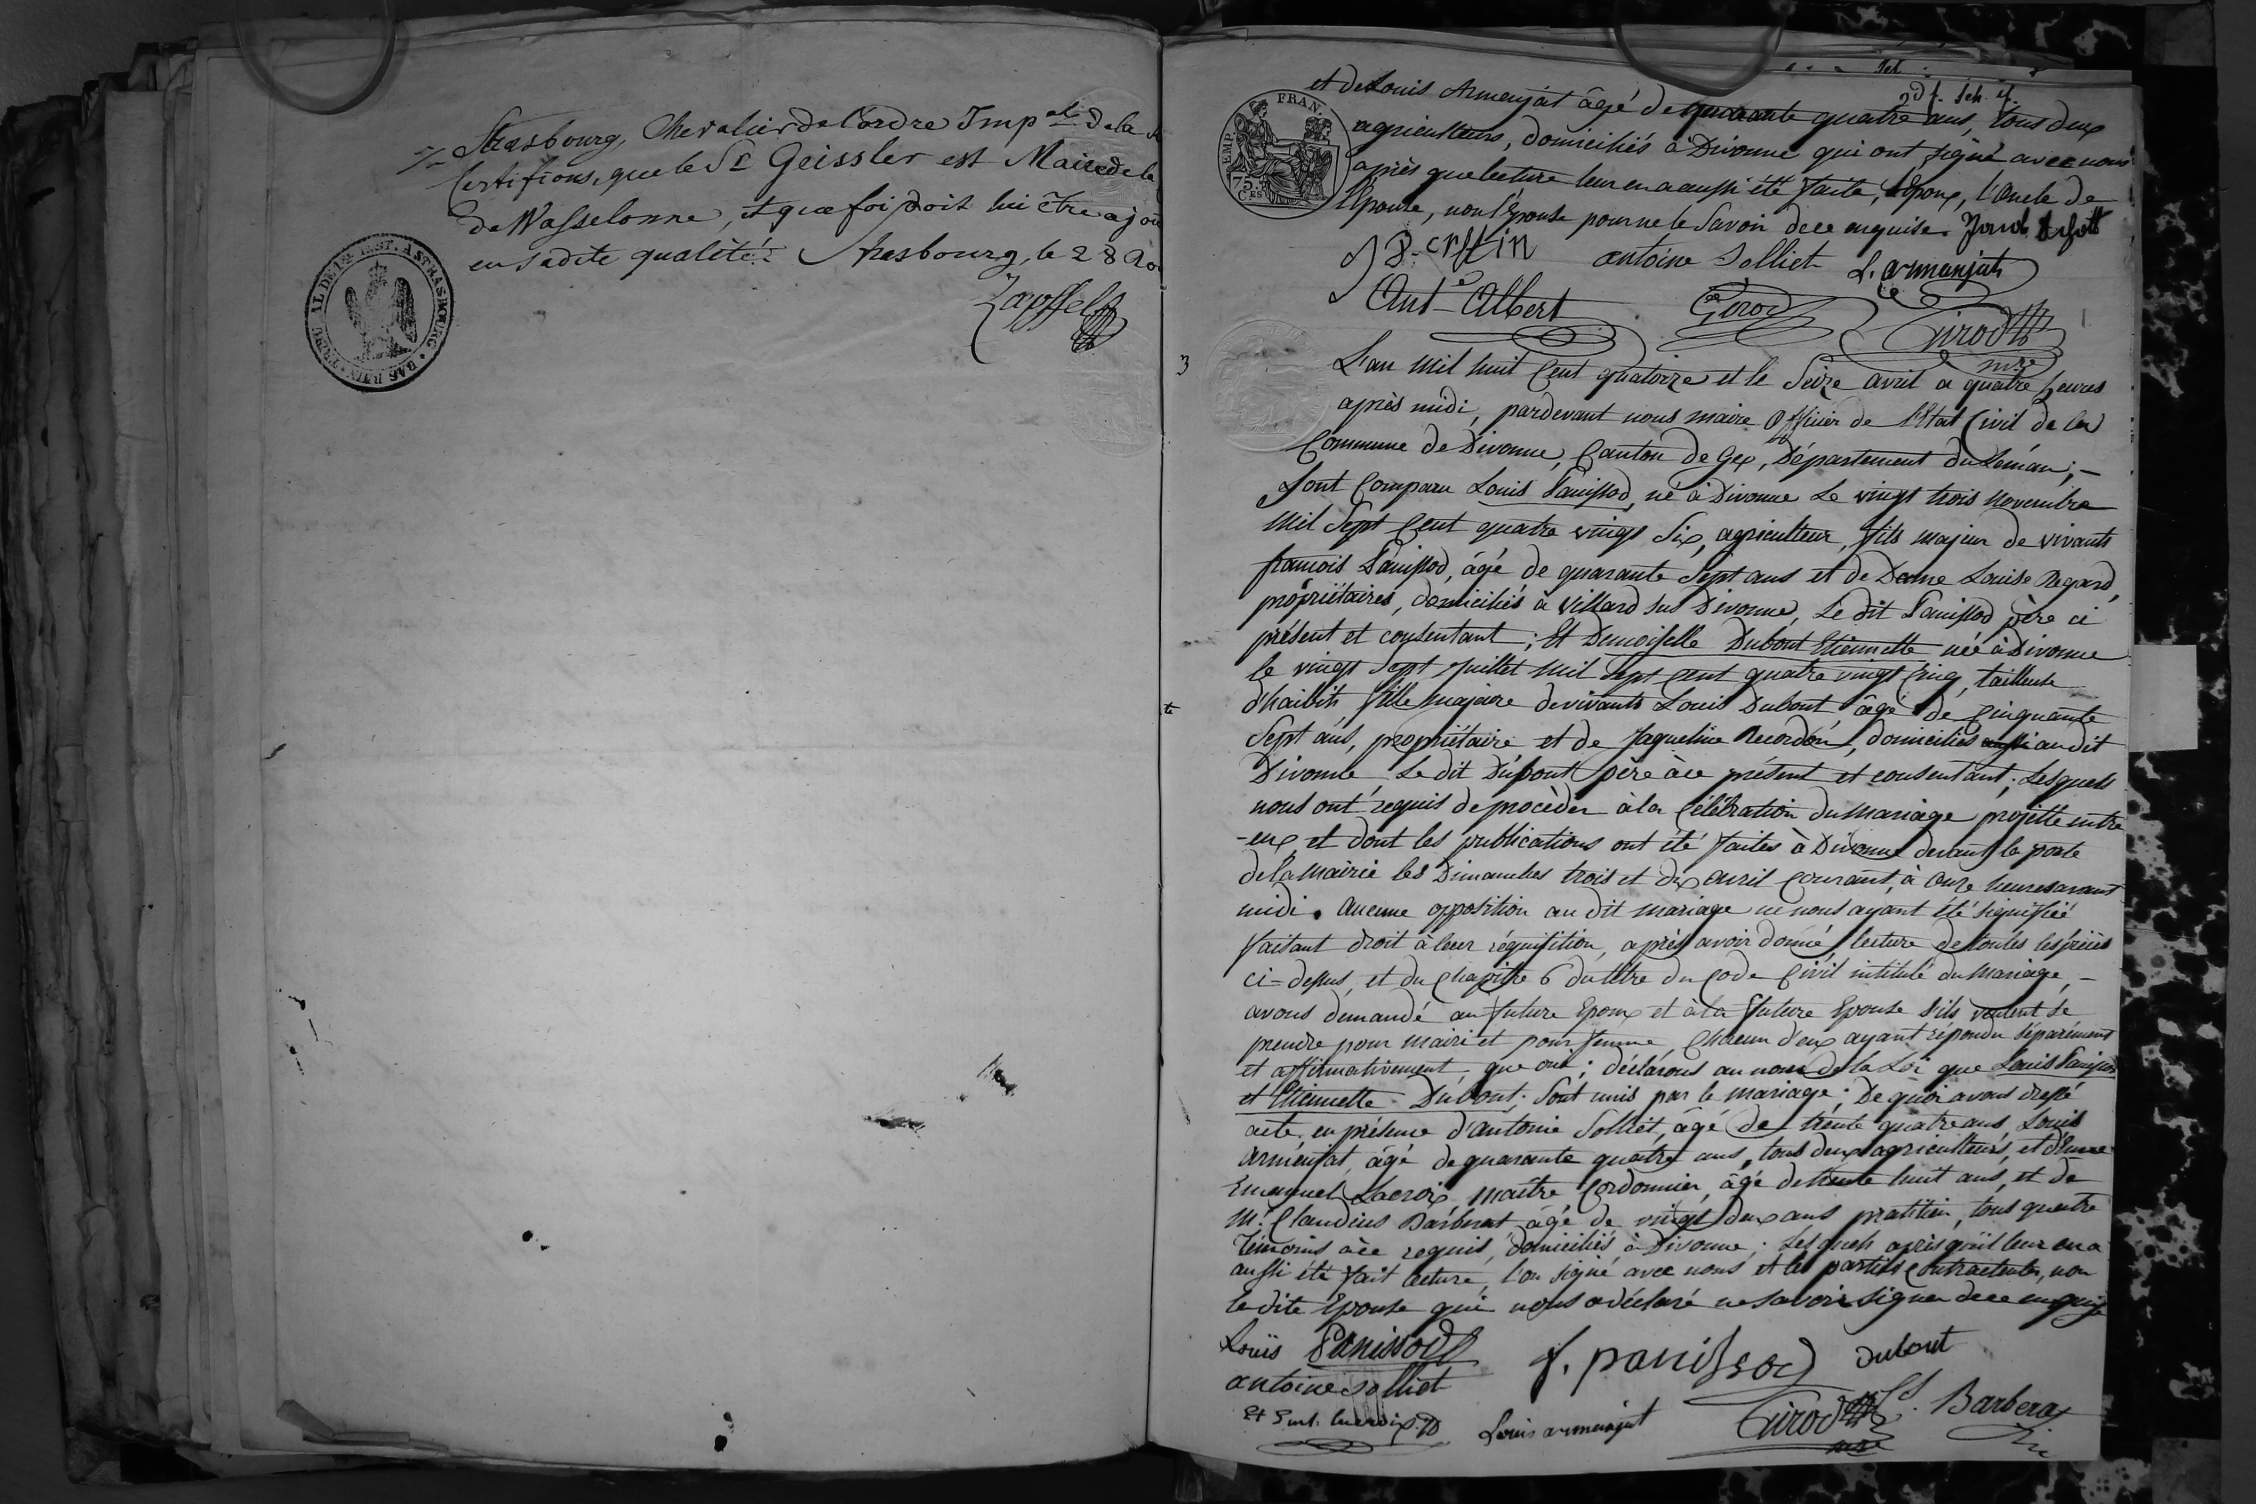 Strasbourg, Chevalier de l'ordre Imp.al de la
Certifions, que le Sr. Geissler est Maire de la
de Wasselonne, et que foi doit lui être ajou
en sadite qualité. Strasbourg, le 28
TRIBUNAL DE 1RE INST. A STRASBOURG * BAS RHIN *
et de Louis Armenjat âgé de quarante quatre ans, tous deux
agriculteurs, domiciliés à Divonne qui ont signé avec nous
après que lecture leur en a aussi été faite, l'époux, l'oncle de
l'épouse, non l'épouse pour ne le savoir de ce enquise.
EMP. FRAN.
75 CES
antoine Solliet L. armanjat
Ant.e Albert Girod Girod
mre
3
L'an mil huit Cent quatorze et le Seize avril a quatre heures
après midi, pardevant nous maire Officier de l'Etat Civil de la
Commune de Divonne, Canton de Gex, Département du Léman; –
Sont Comparu Louis Panissod, né à Divonne le vingt trois novembre
mil Sept Cent quatre vingt Six, agriculteur, fils majeur de vivants
francois Panissod, âgé de quarante Sept ans et de Dame Louise Regard,
propriétaires, domiciliés à Villard sus Divonne, le dit Panissod père ci
présent et consentant; Et Demoiselle Dubout Etiennette née à Divonne
le vingt Sept Juillet mil Sept Cent quatre vingt Cinq, tailleuse
d'haibits fille majeure de vivants Louis Dubout, âgé de Cinquante
Sept ans, propriétaire et de Jaqueline Recordon, domiciliés aussi au dit
Divonne. Le dit Dubout père à ce présent et consentant; Lesquels
nous ont requis de procèder à la Célébration du mariage projetté entre
-eux et dont les publications ont été faites à Divonne devant la porte
de la mairie les Dimanches trois et dix avril Courant, à onze heures avant
midi. Aucune opposition au dit mariage ne nous ayant été signifiée
faisant droit à leur réquisition, après avoir donné lecture de toutes les pièces
ci-dessus, et du Chapitre 6 du titre du Code Civil intitulé du Mariage, –
avons demandé au future Epoux et à la future Epouse s'ils veulent se
prendre pour mairi et pour femme, Chacun d'eux ayant répondu séparément
et affirmativement, que oui; déclarons au nom de la Loi que Louis Panissod
et Etiennette Dubout; Sont unis par le mariage; De quoi avons dressé
acte, en présence d'antoine Solliet, âgé de trente quatre ans, Louis
Armenjat, âgé de quarante quatre ans, tous deux agriculteurs, et d'
Emanuel Lacroix maître Cordonnier, âgé de trente huit ans, et de
Mr. Claudius Barberat âgé de vingt deux ans pratitien, tous quatre
Témoins à ce requis, domiciliés à Divonne; Lesquels après qu'il leur en a
aussi été fait lecture, l'on signé avec nous et les parties Contractentes, non
la dite Epouse qui nous a déclaré ne savoir signer de ce enquise
Louis Panissod f. panissod Dubout
antoine solliet
Louis armenjat Girod Cd. Barberat
mre